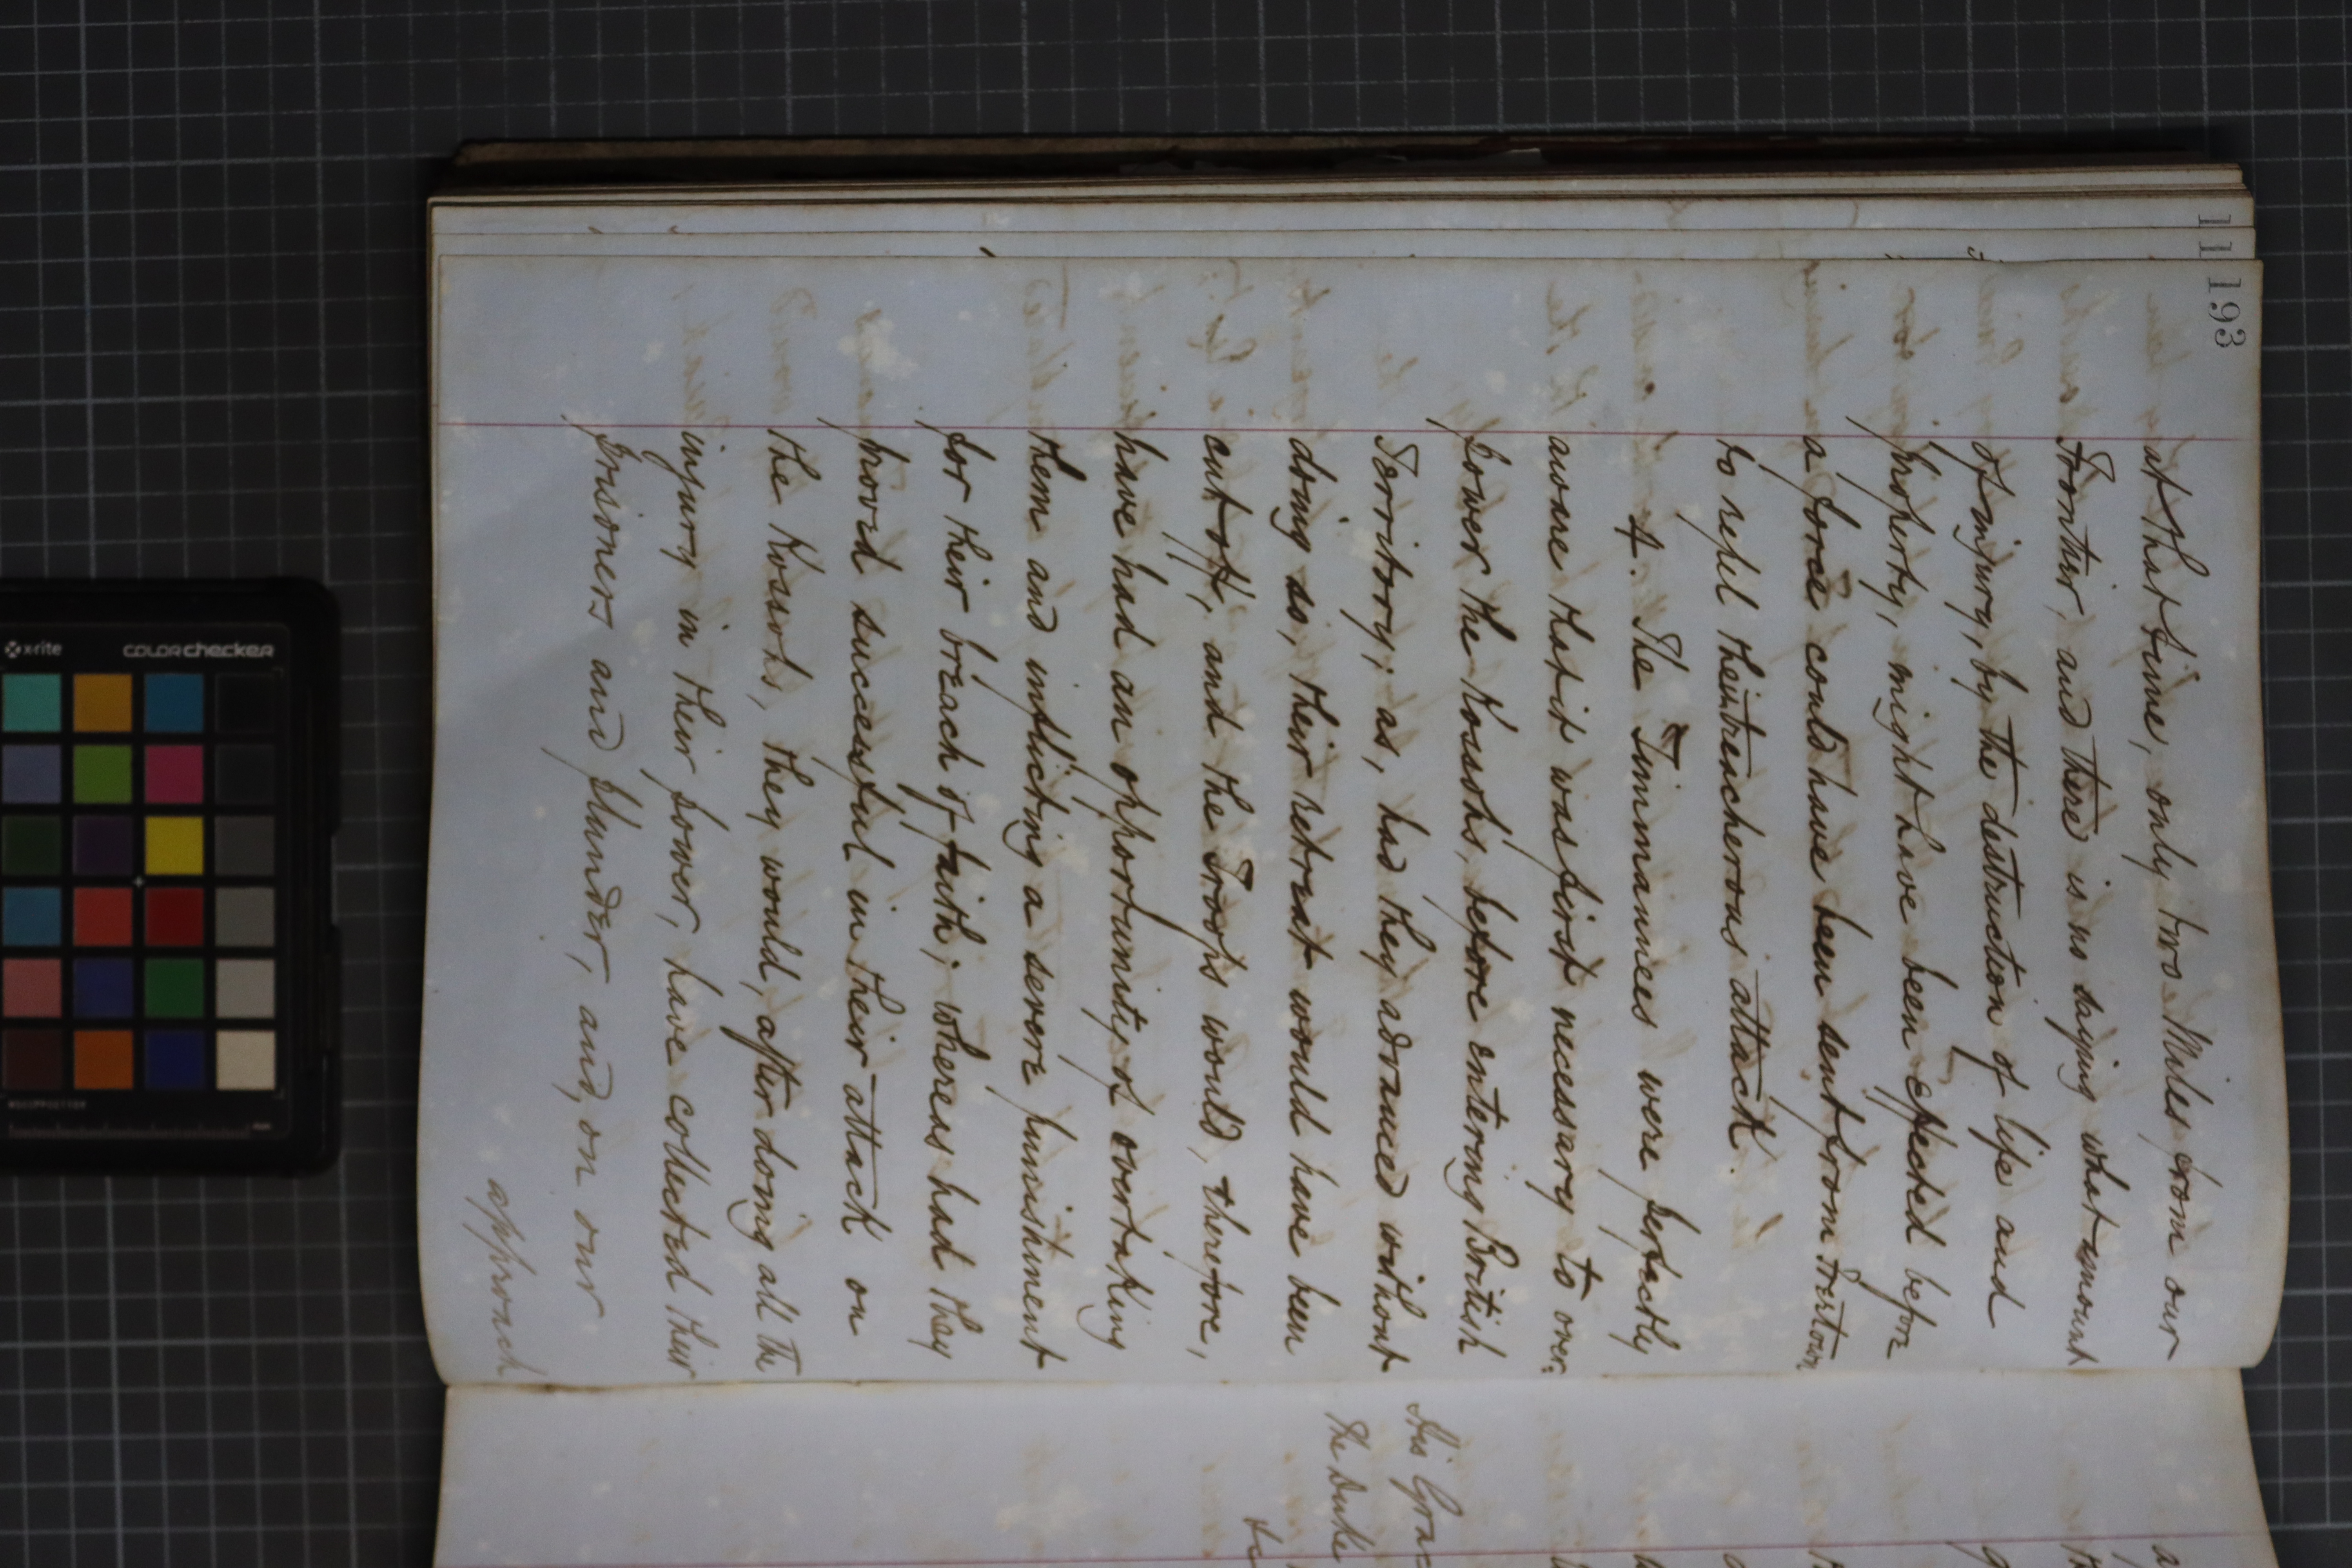 193
at that time, only two Miles from our
Frontier, and there is no saying what amount
of injury, by the destruction of life and
property, might have been effected before
a force could have been sent from Freetown
to repel their treacherous attack.
4. The Timmanees were perfectly
aware that it was first necessary to over-
power the Kossohs, before entering British
Territory; as, had they advanced without
doing so, their retreat would have been
cut off, and the Troops would, therefore,
have had an opportunity of overtaking
them and inflicting a severe punishment
for their breach of faith; whereas had they
proved successful in their attack on
the Kossohs, they would, after doing all the
injury in their power, have collected their
prisoners and plunder, and, on our
approach
His Grace
The Duke
x-rite
colorchecker